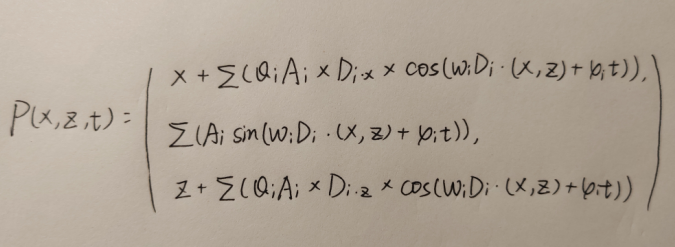 x + ∑(QᵢAᵢ × Dᵢ.x × cos(wᵢDᵢ · (x, z) + φᵢt)),
P(x, z, t) = ∑(Aᵢ sin(wᵢDᵢ · (x, z) + φᵢt)),
z + ∑(QᵢAᵢ × Dᵢ.z × cos(wᵢDᵢ · (x, z) + φᵢt))